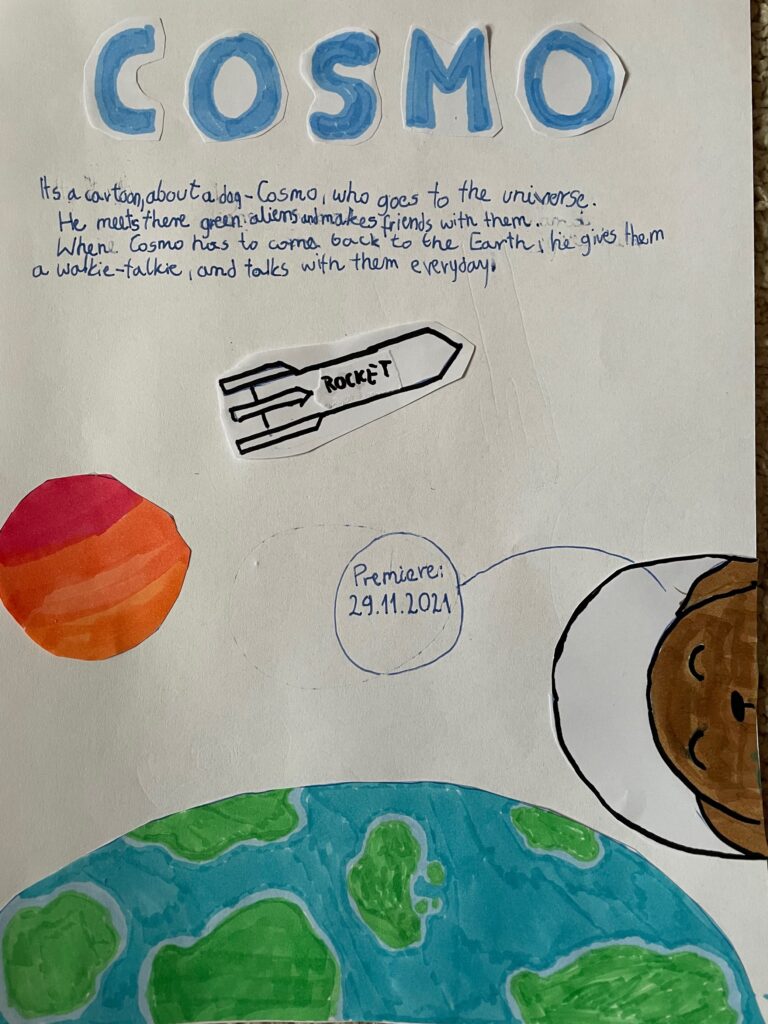 COSMO
Its a cartoon, about a dog - Cosmo, who goes to the universe.
He meets there green aliens and makes friends with them.
When Cosmo has to come back to the Earth, he gives them
a walkie-talkie, and talks with them everyday.
ROCKET
Premiere:
29.11.2021